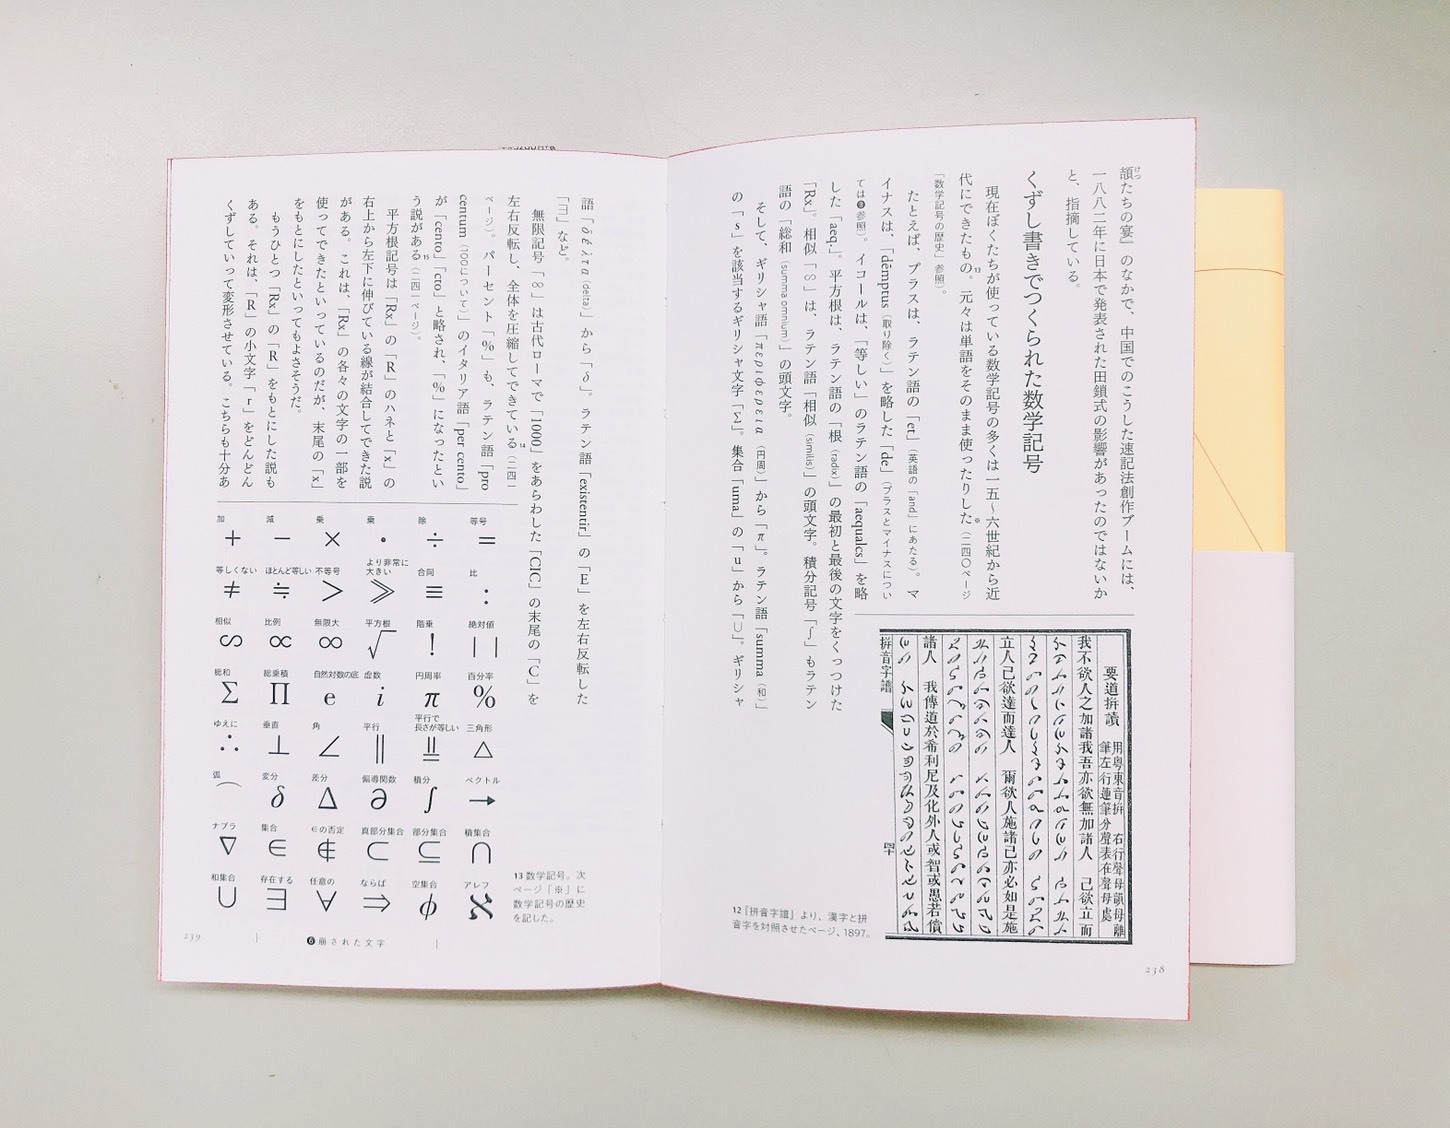 頡たちの宴』のなかで、中国でのこうした速記法創作ブームには、
一八八二年に日本で発表された田鎖式の影響があったのではないか
と、指摘している。
くずし書きでつくられた数学記号
現在ぼくたちが使っている数学記号の多くは一五〜六世紀から近
代にできたもの。13 元々は単語をそのまま使ったりした※(二四〇ページ
「数学記号の歴史」参照)。
たとえば、プラスは、ラテン語の「et」(英語の「and」にあたる)。マ
イナスは、「dēmptus(取り除く)」を略した「de」(プラスとマイナスについ
ては❾参照)。イコールは、「等しい」のラテン語の「aequalcs」を略
した「aeq.」。平方根は、ラテン語の「根(radix)」の最初と最後の文字をくっつけた
「Rx」。相似「∽」は、ラテン語「相似(similis)」の頭文字。積分記号「∫」もラテン
語の「総和(summa omnium)」の頭文字。
そして、ギリシャ語「περιφερεια(円周)」から「π」。ラテン語「summa(和)」
の「s」を該当するギリシャ文字「Σ」。集合「uma」の「u」から「∪」。ギリシャ
要道拼讀 用粤東音拼 右行聲母韻母離
我不欲人之加諸我吾亦欲無加諸人 己欲立而
立人己欲達而達人 爾欲人施諸己亦必如是施
諸人 我傳道於希利尼及化外人或智或愚若償
拼音字譜
12『拼音字譜』より、漢字と拼
音字を対照させたページ、1897。
238
語「δέλτα(delta)」から「δ」。ラテン語「existentir」の「E」を左右反転した
「∃」など。
無限記号「∞」は古代ローマで「1000」をあらわした「CIC」の末尾の「C」を
左右反転し、全体を圧縮してできている14(二四一
ページ)。パーセント「%」も、ラテン語「pro
centum(100について)」のイタリア語「per cento」
が「cento」「cto」と略され、「%」になったとい
う説がある15(二四一ページ)。
平方根記号は「Rx」の「R」のハネと「x」の
右上から左下に伸びている線が結合してできた説
がある。これは、「Rx」の各々の文字の一部を
使ってできたといっているのだが、末尾の「x」
をもとにしたといってもよさそうだ。
もうひとつ「Rx」の「R」をもとにした説も
ある。それは、「R」の小文字「r」をどんどん
くずしていって変形させている。こちらも十分あ
加 減 乗 乗 除 等号
+ − × · ÷ =
等しくない ほとんど等しい 不等号 より非常に大きい 合同 比
≠ ≒ > ≫ ≡ :
相似 比例 無限大 平方根 階乗 絶対値
∽ ∝ ∞ √ ! | |
総和 総乗積 自然対数の底 虚数 円周率 百分率
Σ Π e i π %
ゆえに 垂直 角 平行 平行で長さが等しい 三角形
∴ ⊥ ∠ ∥ ⇈ △
弧 変分 差分 偏導関数 積分 ベクトル
⌒ δ Δ ∂ ∫ →
ナブラ 集合 ∈の否定 真部分集合 部分集合 積集合
∇ ∈ ∉ ⊂ ⊆ ∩
和集合 存在する 任意の ならば 空集合 アレフ
∪ ∃ ∀ ⇒ φ ℵ
13 数学記号。次
ページ「※」に
数学記号の歴史
を記した。
239
❻崩された文字